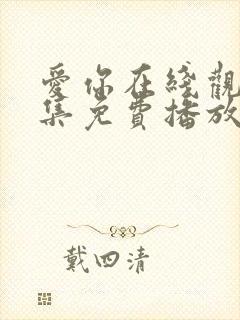 愛你在綫觀
集免費播放
戴四清